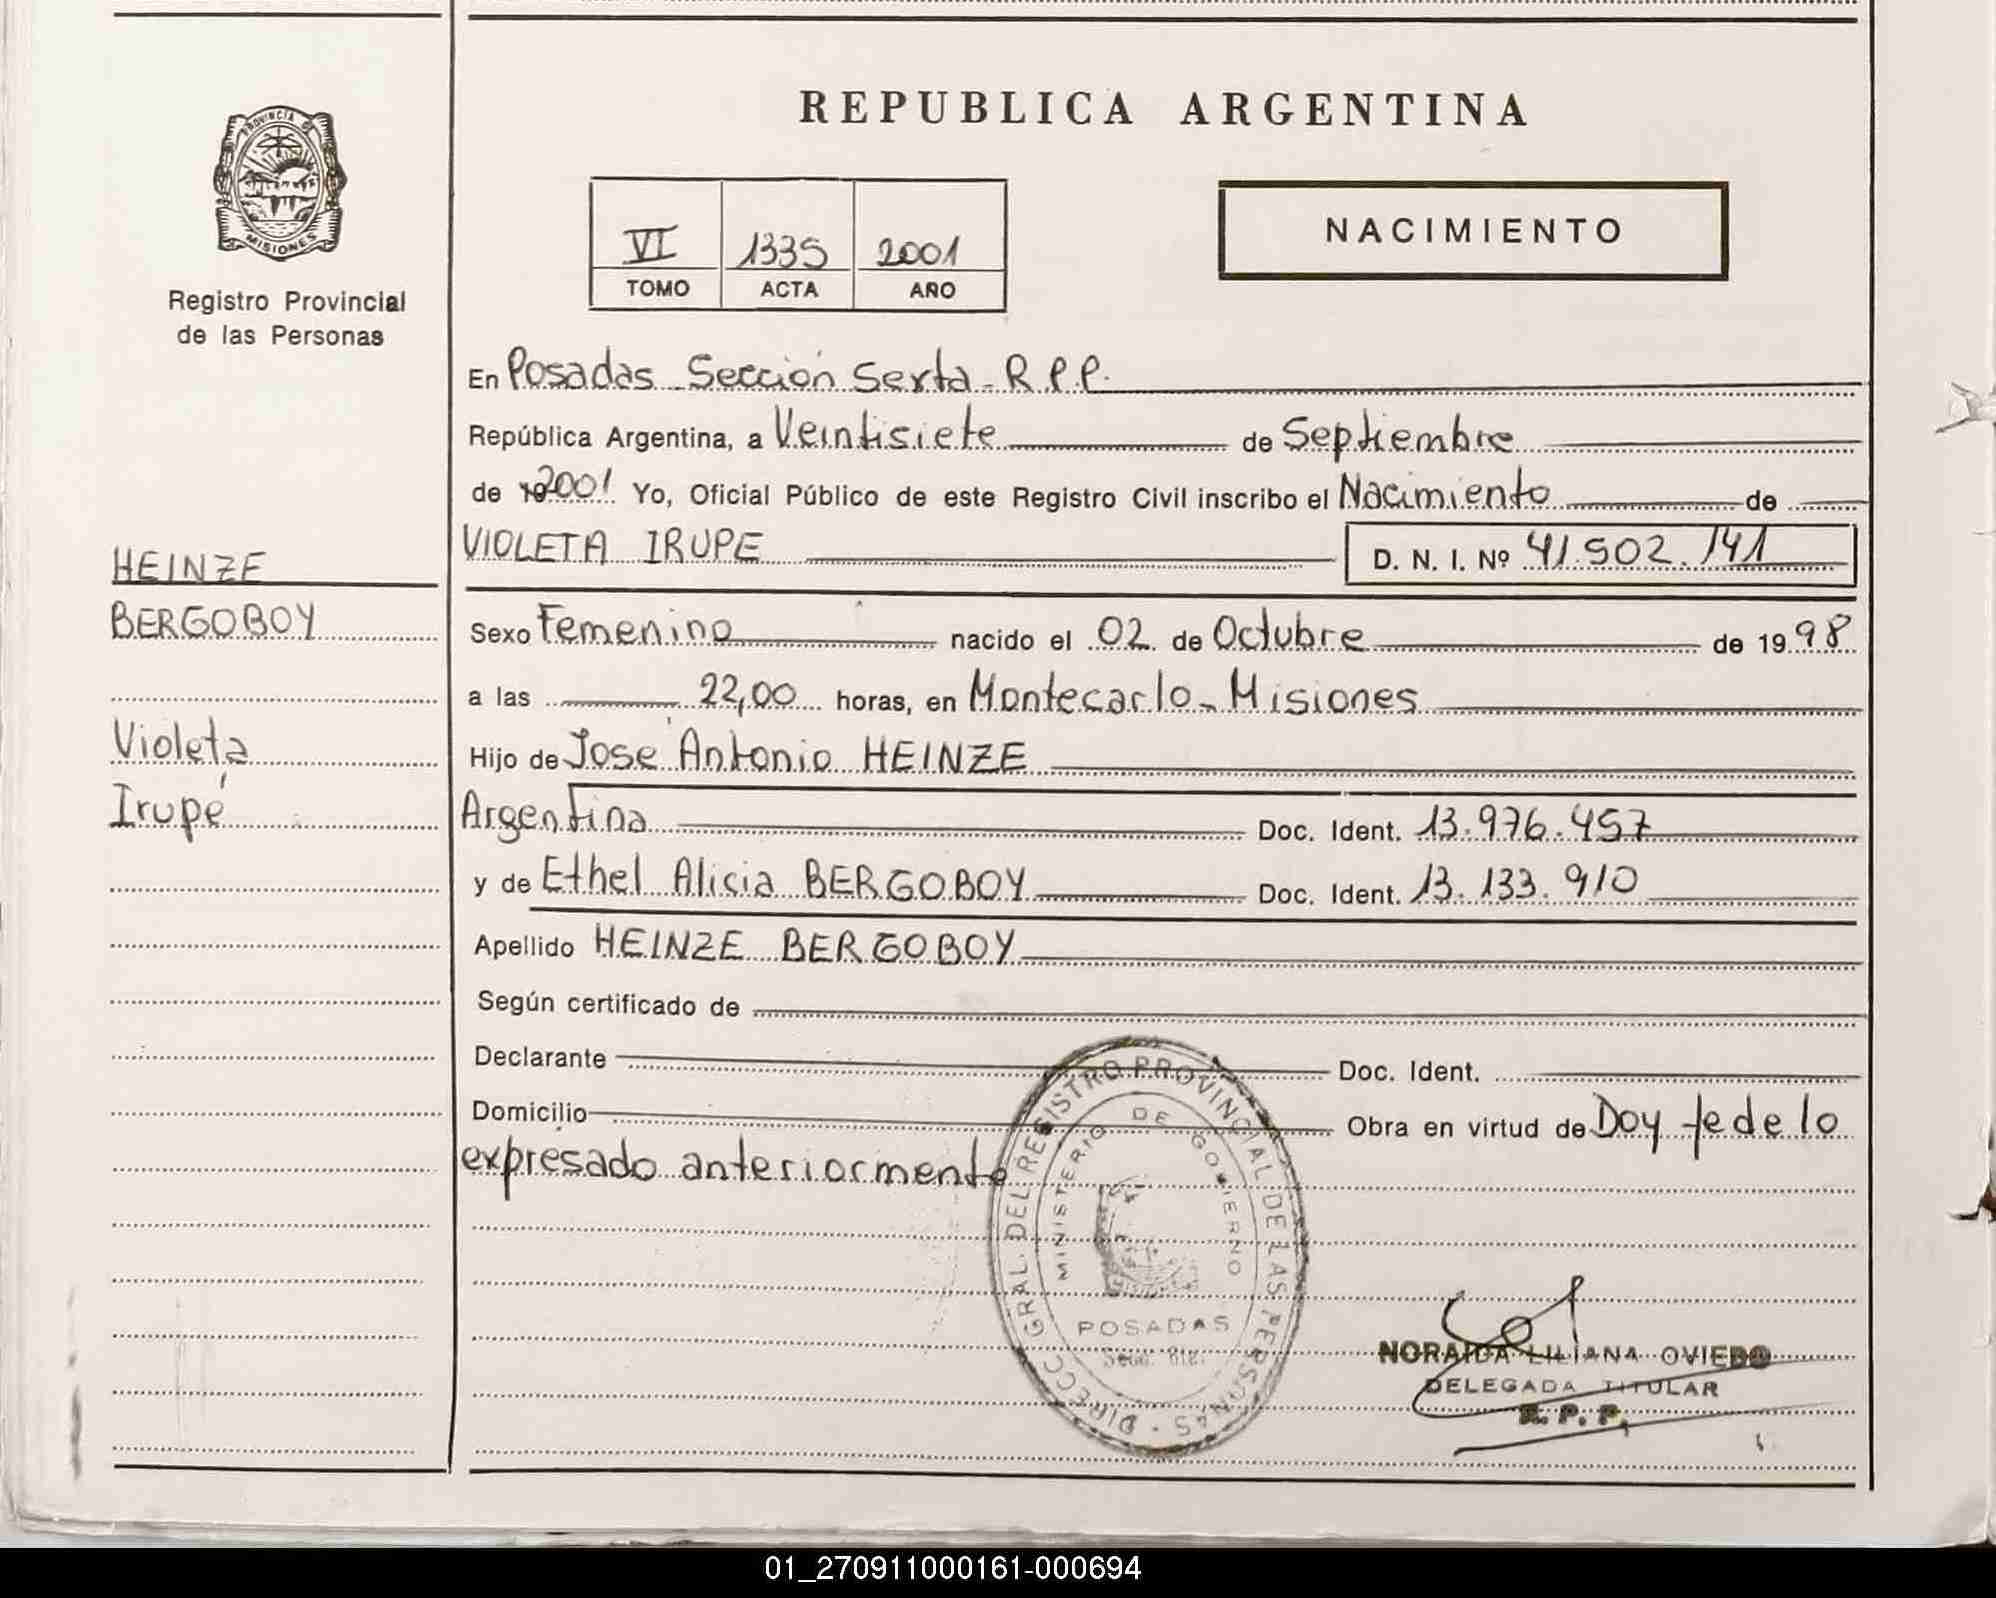 REPUBLICA ARGENTINA
PROVINCIA DE
MISIONES
Registro Provincial
de las Personas
VI 1335 2001
TOMO ACTA AÑO
NACIMIENTO
HEINZE
BERGOBOY
Violeta
Irupé
En Posadas - Sección Sexta - R.P.P.
República Argentina, a Veintisiete de Septiembre
de 2001 Yo, Oficial Público de este Registro Civil inscribo el Nacimiento de
VIOLETA IRUPE D. N. I. Nº 41.502.141
Sexo Femenino nacido el 02 de Octubre de 1998
a las 22,00 horas, en Montecarlo - Misiones
Hijo de José Antonio HEINZE
Argentina Doc. Ident. 13.976.457
y de Ethel Alicia BERGOBOY Doc. Ident. 13.133.910
Apellido HEINZE BERGOBOY
Según certificado de
Declarante Doc. Ident.
Domicilio Obra en virtud de Doy fe de lo
expresado anteriormente
DIRECC. GRAL. DEL REGISTRO PROVINCIAL DE LAS PERSONAS
MINISTERIO DE GOBIERNO
POSADAS
NORAIDA LILIANA OVIEDO
DELEGADA TITULAR
R. P. P.
01_270911000161-000694